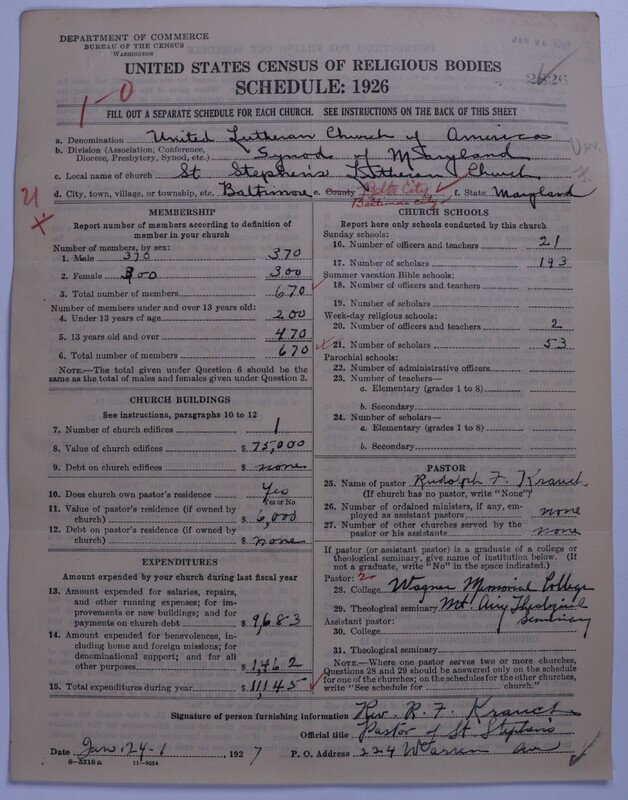 DEPARTMENT OF COMMERCE
BUREAU OF THE CENSUS
WASHINGTON
UNITED STATES CENSUS OF RELIGIOUS BODIES
SCHEDULE: 1926
1-0
FILL OUT A SEPARATE SCHEDULE FOR EACH CHURCH. SEE INSTRUCTIONS ON THE BACK OF THIS SHEET
a. Denomination United Lutheran Church of America
b. Division (Association, Conference,
Diocese, Presbytery, Synod, etc.) Synod of Maryland
c. Local name of church St Stephens Lutheran Church
d. City, town, village, or township, etc. Baltimore e. County Balto City, f. State Maryland
Baltimore City
MEMBERSHIP
Report number of members according to definition of
member in your church
Number of members, by sex:
1. Male 370 370
2. Female 300 300
3. Total number of members 670
Number of members under and over 13 years old:
4. Under 13 years of age 200
5. 13 years old and over 470
6. Total number of members 670
NOTE.—The total given under Question 6 should be
same as the total of males and females given under Question 3.
CHURCH BUILDINGS
See instructions, paragraphs 10 to 12
7. Number of church edifices 1
8. Value of church edifices $ 75,000
9. Debt on church edifices $ none
10. Does church own pastor's residence Yes
Yes or No
11. Value of pastor's residence (if owned by
church) $ 6,000
12. Debt on pastor's residence (if owned by
church) $ none
EXPENDITURES
Amount expended by your church during last fiscal year
13. Amount expended for salaries, repairs,
and other running expenses; for im-
provements or new buildings; and for
payments on church debt $ 9,683
14. Amount expended for benevolences, in-
cluding home and foreign missions; for
denominational support; and for all
other purposes $ 1,462
15. Total expenditures during year $ 11,145
CHURCH SCHOOLS
Report here only schools conducted by this church
Sunday schools:
16. Number of officers and teachers 21
17. Number of scholars 193
Summer vacation Bible schools:
18. Number of officers and teachers
19. Number of scholars
Week-day religious schools:
20. Number of officers and teachers 2
21. Number of scholars 53
Parochial schools:
22. Number of administrative officers
23. Number of teachers—
a. Elementary (grades 1 to 8)
b. Secondary
24. Number of scholars—
a. Elementary (grades 1 to 8)
b. Secondary
PASTOR
25. Name of pastor Rudolph F. Krauch
(If church has no pastor, write "None")
26. Number of ordained ministers, if any, em-
ployed as assistant pastors none
27. Number of other churches served by the
pastor or his assistants none
If pastor (or assistant pastor) is a graduate of a college or
theological seminary, give name of institution below. (If
not a graduate, write "No" in the space indicated.)
Pastor: 2
28. College Wagner Memorial College
29. Theological seminary Mt. Airy Theological
Seminary
Assistant pastor:
30. College
31. Theological seminary
NOTE.—Where one pastor serves two or more churches,
Questions 28 and 29 should be answered only on the schedule
for one of the churches; on the schedules for the other churches,
write "See schedule for church."
Signature of person furnishing information Rev. R. F. Krauch
Official title Pastor of St Stephens
Date Jan. 24-1 1927 P. O. Address 224 Warren Av
8-5318a 11-9024